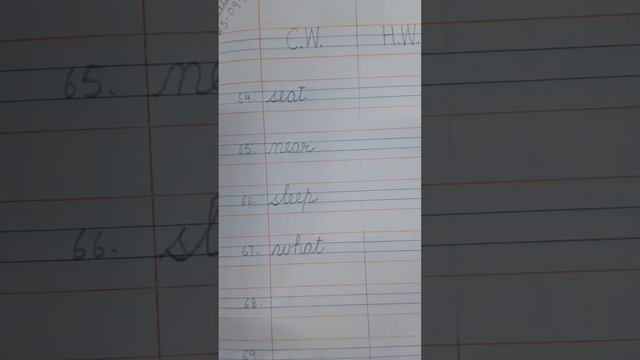 C.W. H.W.
64. seat
65. near
66. sleep
67. what
68.
69